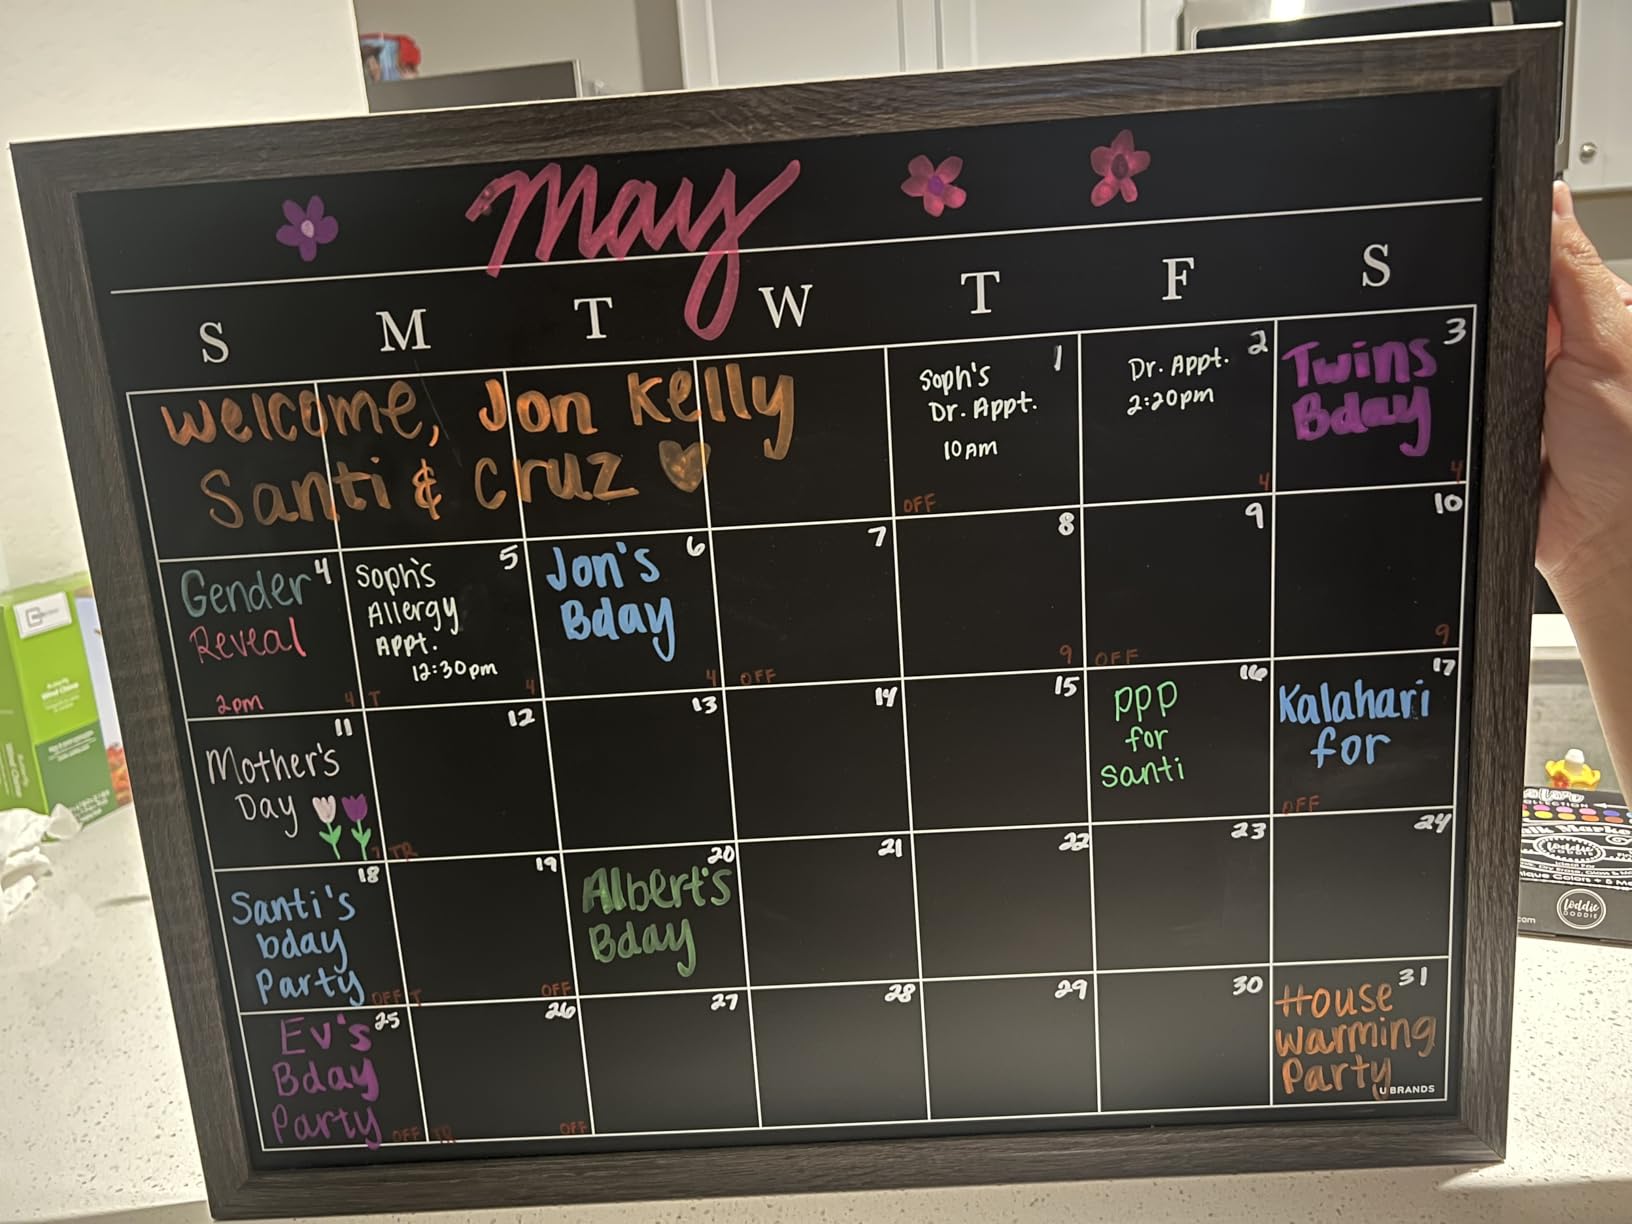 May
S M T W T F S
Welcome, Jon Kelly
Santi & Cruz
1
Soph's
Dr. Appt.
10AM
OFF
2
Dr. Appt.
2:20pm
4
3
Twins
Bday
4
4
Gender
Reveal
2pm
4
5
Soph's
Allergy
Appt.
12:30pm
T
4
6
Jon's
Bday
4
7
OFF
8
9
9
OFF
10
9
11
Mother's
Day
12
TR
13
14
15
16
PPP
for
Santi
17
Kalahari
for
OFF
18
Santi's
bday
Party
OFF
19
T
OFF
20
Albert's
Bday
21
22
23
24
25
Ev's
Bday
Party
OFF
26
TR
OFF
27
28
29
30
31
House
Warming
Party
U BRANDS
foddie
GOODIE